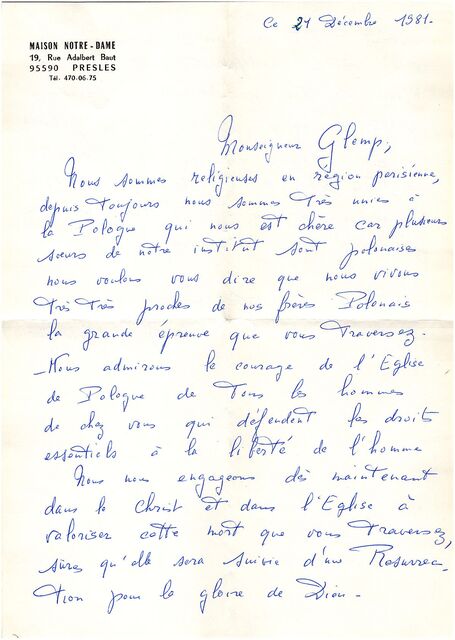 Ce 21 Décembre 1981.
MAISON NOTRE-DAME
19, Rue Adalbert Baut
95590 PRESLES
Tél. 470-06-75
Monseigneur Glemp,
Nous sommes religieuses en région parisienne,
depuis toujours nous sommes très unies à
la Pologne qui nous est chère car plusieurs
sœurs de notre institut sont polonaises
nous voulons vous dire que nous vivons
très très proches de nos frères Polonais
la grande épreuve que vous traversez.
Nous admirons le courage de l'Eglise
de Pologne de tous les hommes
de chez vous qui défendent les droits
essentiels à la liberté de l'homme
Nous nous engageons dès maintenant
dans le Christ et dans l'Eglise à
valoriser cette mort que vous traversez,
sûres qu'elle sera suivie d'une Resurrec-
tion pour la gloire de Dieu.